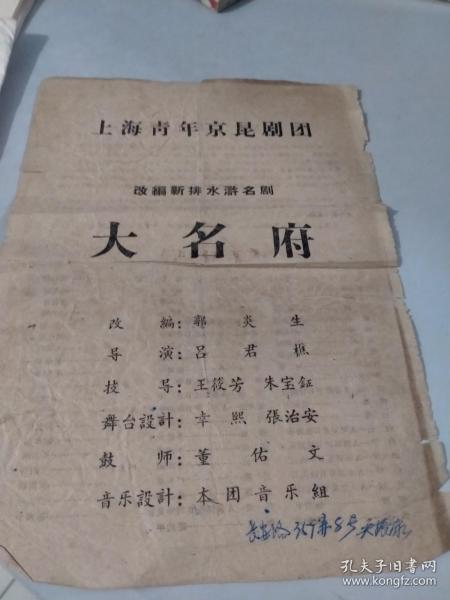 上海青年京昆剧团
改編新排水滸名剧
大名府
改編：郭炎生
导演：呂君樵
技导：王筱芳 朱宝鈺
舞台設計：幸熙 張治安
鼓师：董佑文
音乐設計：本团音乐組
孔夫子旧书网